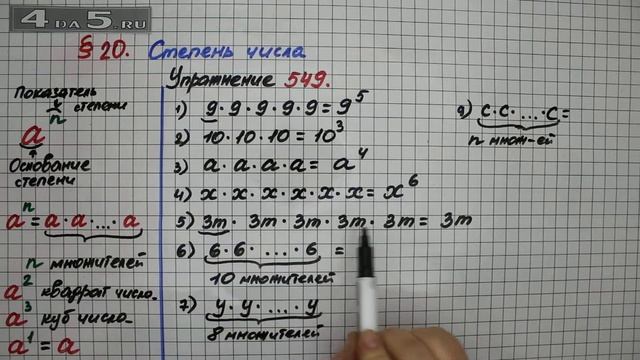 4DA5.RU
§ 20. Степень числа
Упражнение 549.
Показатель
степени
n
a
Основание
степени
a = a · a · ... · a
n множителей
a² квадрат число_
a³ куб число_
a¹ = a
1) 9 · 9 · 9 · 9 · 9 = 9⁵
2) 10 · 10 · 10 = 10³
3) a · a · a · a = a⁴
4) x · x · x · x · x · x = x⁶
5) 3m · 3m · 3m · 3m · 3m = 3m
6) 6 · 6 · .... · 6 =
10 множителей
7) y · y · .... · y
8 множителей
c · c · ... · c =
n множ-ей